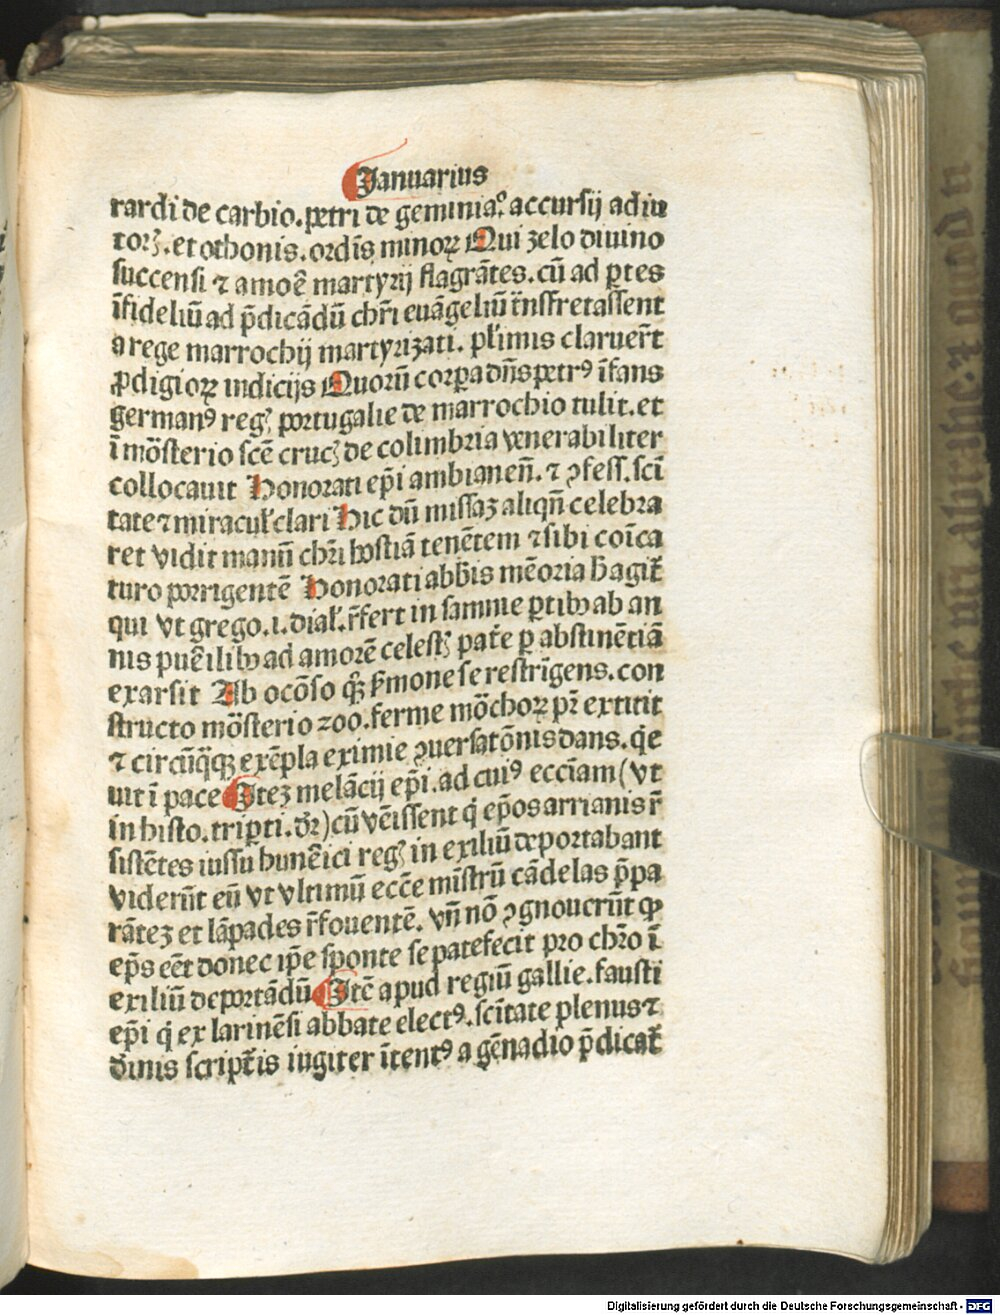 Januarius
rardi de carbio. petri de geminiaͦ. accursij adiu
torꝫ. et othonis. ordīs minoꝝ Qui zelo diuino
succensi ⁊ amoē martyrij flagrātes. cū ad ꝑtes
īfideliū ad p̄dicādū chr̄i euāgeliū t̄nsfretassent
a rege marrochij martyrizati. pl̄imis claruer̄t
ꝓdigioꝝ indicijs Quorū corꝑa dn̄s petrꝰ īfans
germanꝰ regꝫ portugalie de marrochio tulit. et
ī mōsterio scē crucꝫ de colimbria venerabiliter
collocauit Honorati ep̄i ambianen̄. ⁊ ꝯfess. sci
tate ⁊ miracul̄ clari Hic dū missaꝫ aliqn̄ celebra
ret vidit manū chr̄i hostiā tenētem ⁊ sibi coīca
turo porrigentē Honorati abb̄is mēoria h̄ agit̄
qui vt grego. i. dial̄. r̄fert in samnie ꝑtibꝫ ab an
nis puēilibꝫ ad amorē celestꝫ patē ꝑ abstinētiā
exarsit Ab ocōso qꝫ s̄mone se restrīgens. con
structo mōsterio 200. ferme mōchoꝝ pr̄ extitit
⁊ circūq̄qꝫ exēpla eximie ꝯuersatōnis dans. q̇e
uit ī pace Iteꝫ melācij ep̄i. ad cuiꝰ eccīam (vt
in histo. triꝑti. dr̄) cū vēissent q̇ ep̄os arrianis r̄
sistētes iussu hunēici regꝫ in exiliū deportabant
viderūt eū vt vltimū eccē mīstrū cādelas p̄pa
rāteꝫ et lāpades r̄fouentē. vn̄ nō ꝯgnouerūt ꝙ
ep̄s eēt donec ip̄e sponte se patefecit pro chr̄o ī
exiliū deportādū Itē apud regiū gallie. fausti
ep̄i q̇ ex larinēsi abbate electꝰ. scītate plenus ⁊
diuinis script̄is iugiter ītentꝰ a gēnadio p̄dicat̄
Digitalisierung gefördert durch die Deutsche Forschungsgemeinschaft - DFG